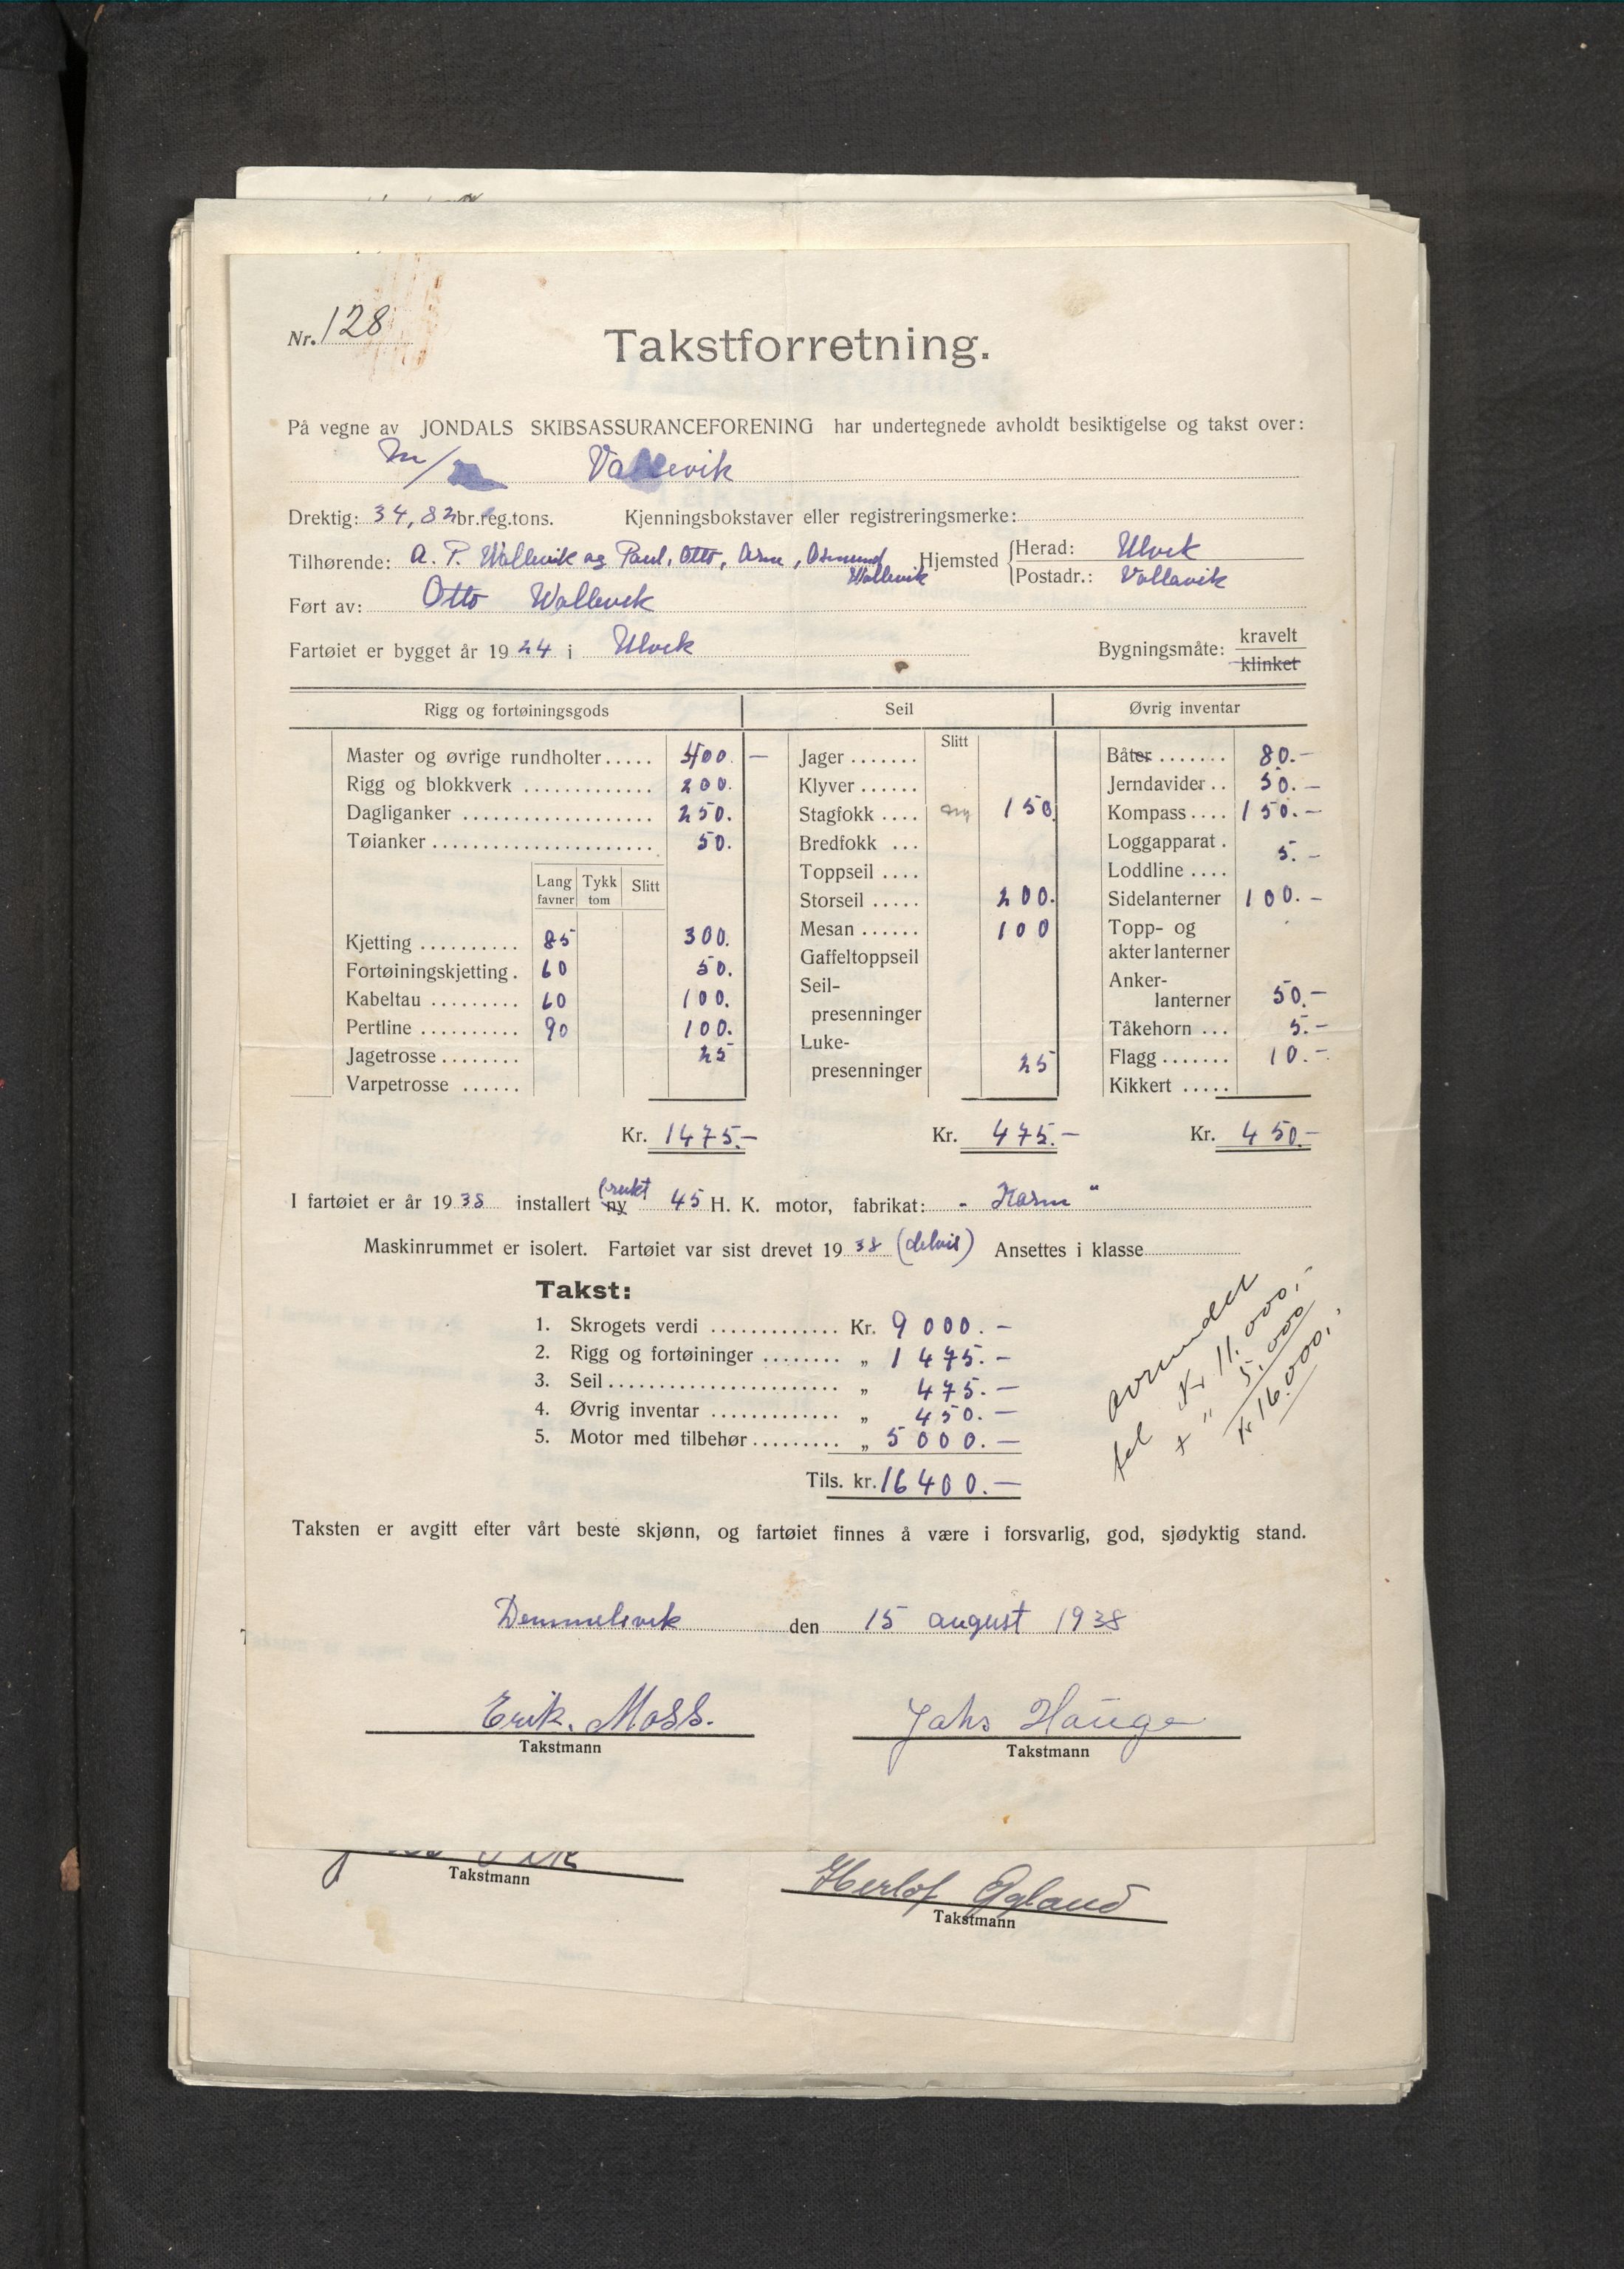 Nr. 128
Takstforretning.
På vegne av JONDALS SKIBSASSURANCEFORENING har undertegnede avholdt besiktigelse og takst over:
M/ Vallevik
Drektig: 34,82 br.reg.tons. Kjenningsbokstaver eller registreringsmerke:
Tilhørende: A. P. Wallevik og Paul, Otto, Arne, Osmund Wallevik Hjemsted Herad: Ulvik
Postadr.: Vallavik
Ført av: Otto Wallevik
Fartøiet er bygget år 1924 i Ulvik Bygningsmåte: kravelt
klinket
Rigg og fortøiningsgods Seil Øvrig inventar
Slitt
Master og øvrige rundholter..... 400.— Jager ....... Båter ....... 80.—
Rigg og blokkverk ............. 200. Klyver ...... Jerndavider .. 50.—
Dagliganker ................... 250. Stagfokk .... ny 150 Kompass .... 150.—
Tøianker ...................... 50. Bredfokk ... Loggapparat . 5.—
Toppseil .... Loddline ....
Lang favner Tykk tom Slitt Storseil ..... 200. Sidelanterner 100.—
Kjetting .......... 85 300. Mesan ...... 100 Topp- og
akterlanterner
Fortøiningskjetting . 60 50. Gaffeltoppseil Anker-
Kabeltau ......... 60 100. Seil-
presenninger lanterner 50.—
Pertline .......... 90 100. Tåkehorn ... 5.—
Jagetrosse ........ 25 Luke-
presenninger 25 Flagg ....... 10.—
Varpetrosse ...... Kikkert .....
Kr. 1475.— Kr. 475.— Kr. 450.—
I fartøiet er år 1938 installert ny brukt 45 H. K. motor, fabrikat: "Karm"
Maskinrummet er isolert. Fartøiet var sist drevet 1938 (delvis) Ansettes i klasse
Takst:
1. Skrogets verdi ............. Kr. 9000.—
2. Rigg og fortøininger ........ „ 1475.—
3. Seil ....................... „ 475.—
4. Øvrig inventar ............. „ 450.—
5. Motor med tilbehør ......... „ 5000.—
Tils. kr. 16400.—
avrundet
til Kr 11.000,-
+ " 5.000
Kr 16.000,-
Taksten er avgitt efter vårt beste skjønn, og fartøiet finnes å være i forsvarlig, god, sjødyktig stand.
den 15 august 1938
Erik. Moss. Jahs Hauge
Takstmann Takstmann
Takstmann
Herlof
Takstmann